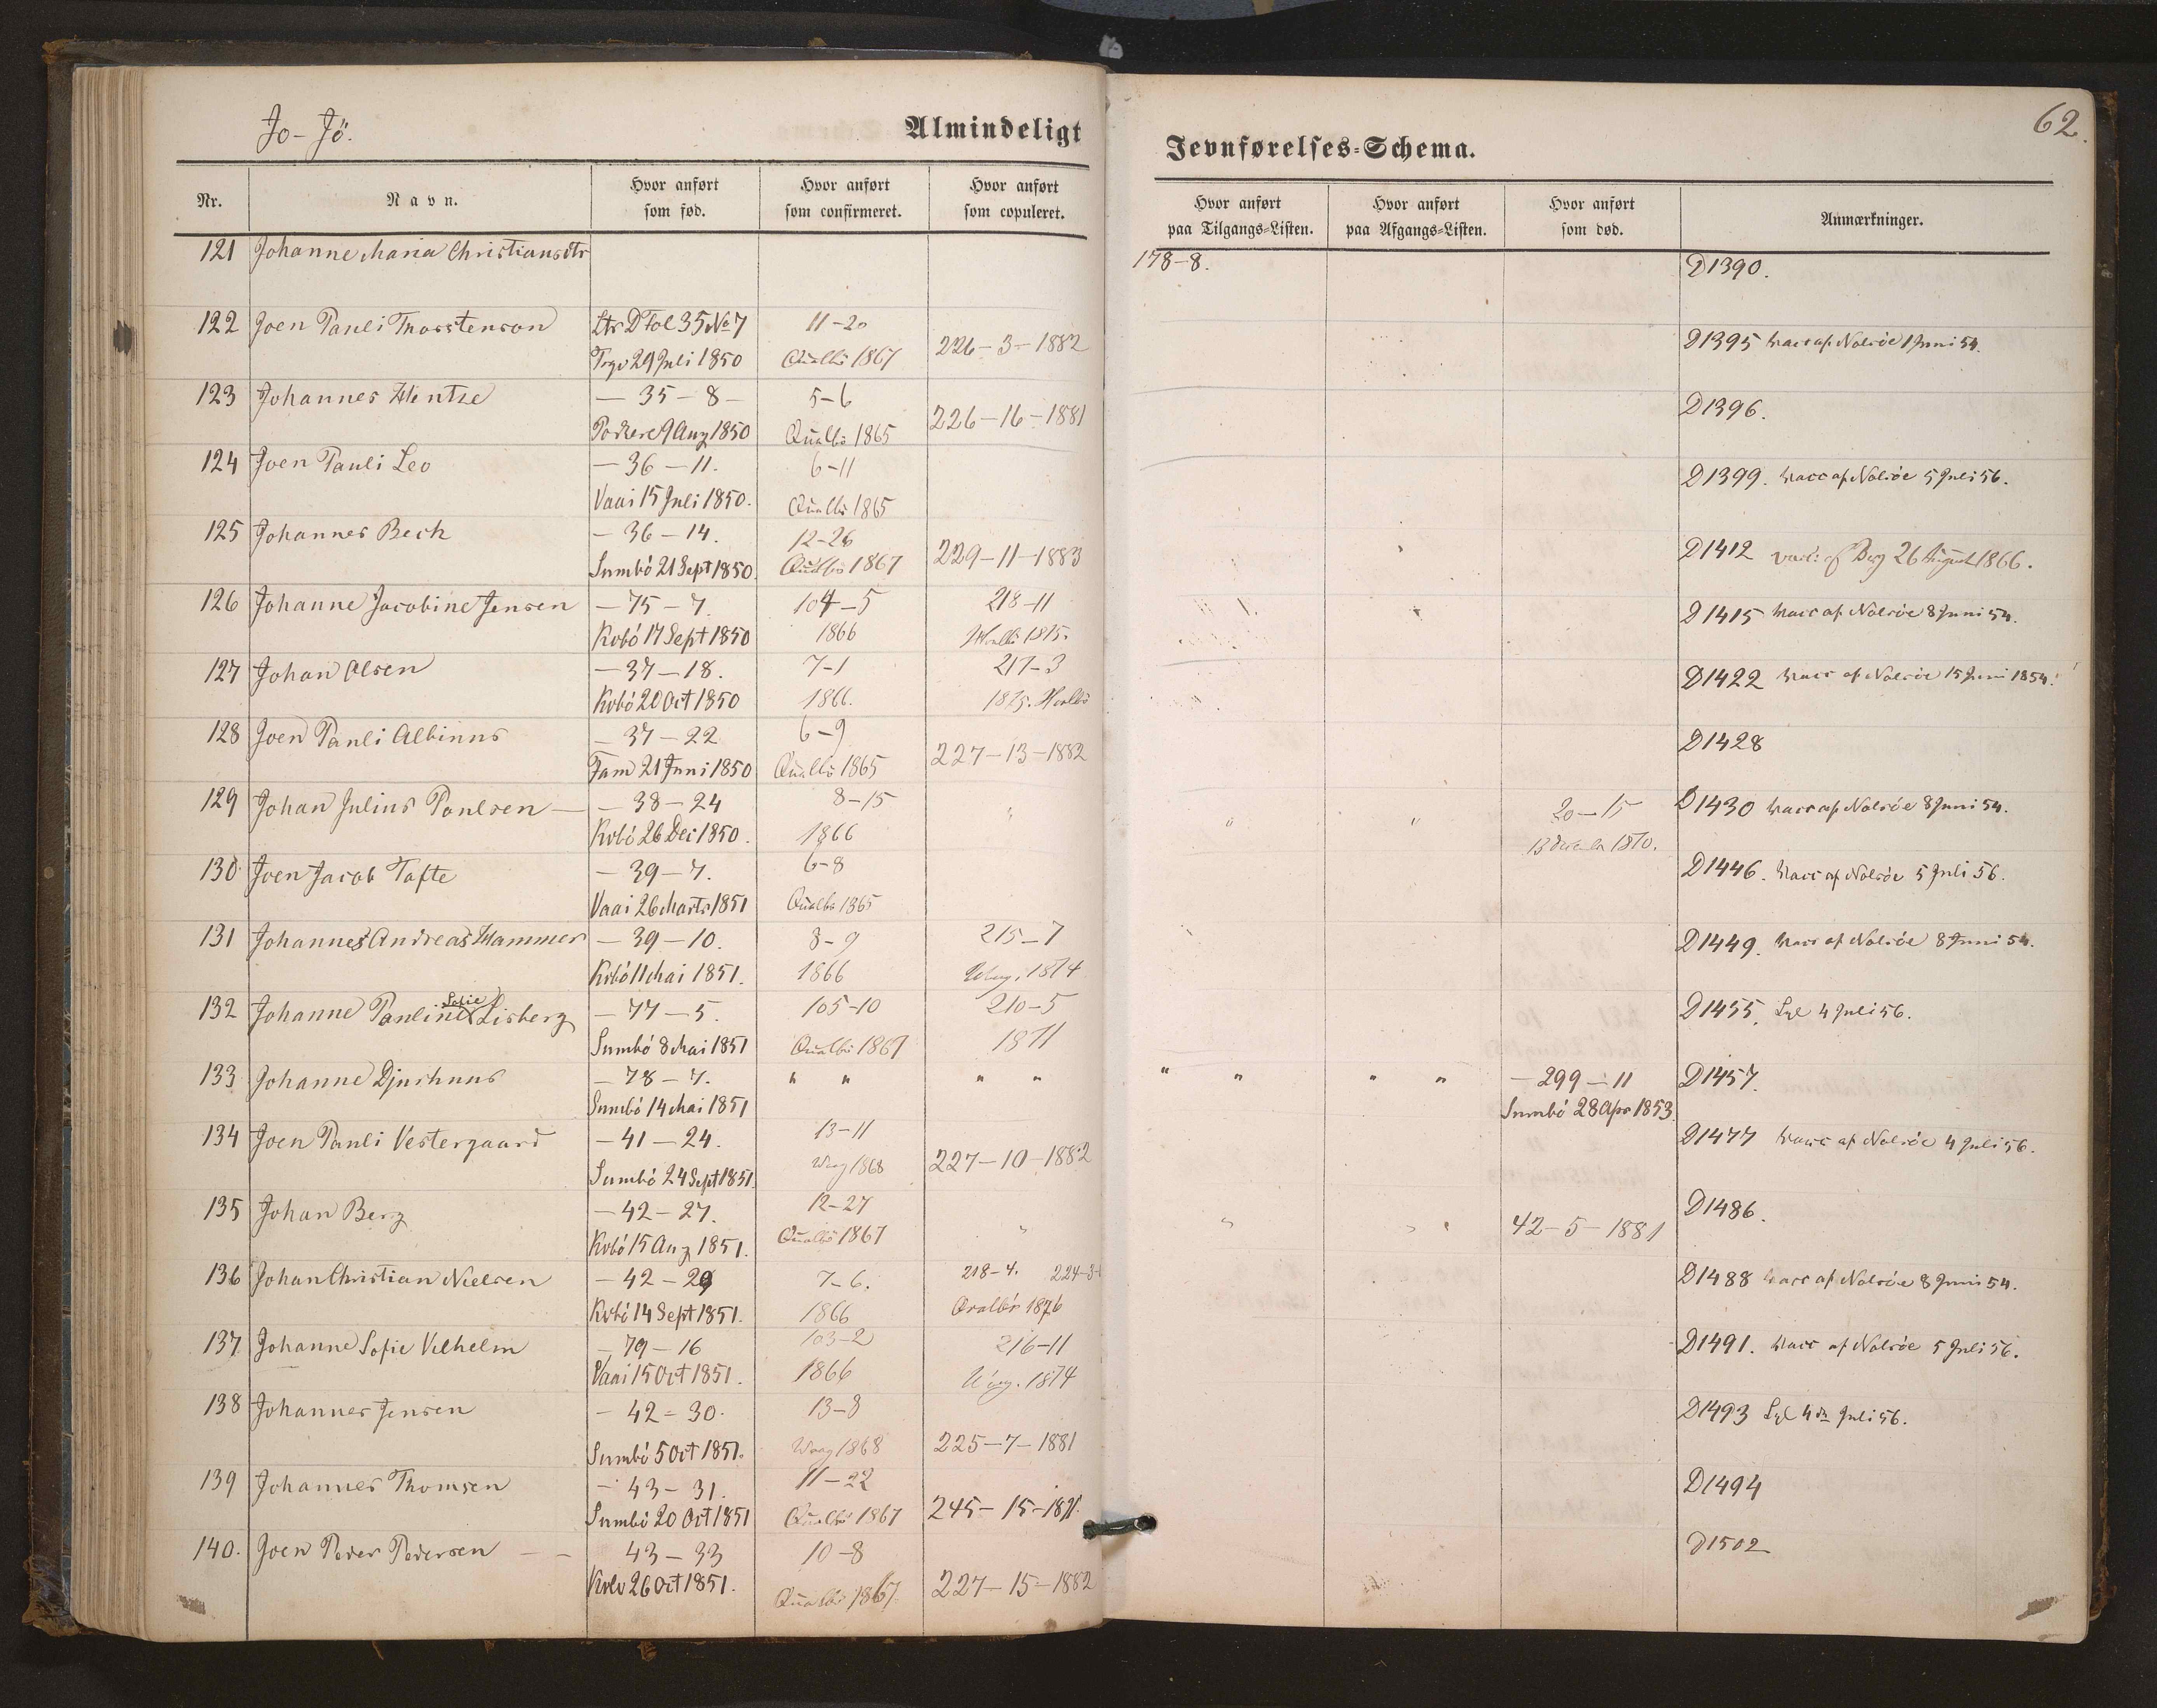 Jo - Jö.
Almindeligt
Jevnførelses-Schema.
62.
Nr.
Navn.
Hvor anført som fød.
Hvor anført som confirmeret.
Hvor anført som copuleret.
Hvor anført paa Tilgangs-Listen.
Hvor anført paa Afgangs-Listen.
Hvor anført som død.
Anmærkninger.
121 Johanne Maria Christiansdtr 178-8. D1390.
122 Joen Pauli Thorstenson Ltr D Fol 35 No 7 11-20 226-3-1882 D1395 Vacc af Nolsöe 1 Juni 54.
29 Juli 1850 Qualbö 1867
123 Johannes Hentze - 35 - 8 - 5-6 226-16-1881 D1396.
Porkere 9 Aug 1850 Qualbö 1865
124 Joen Pauli Leo - 36 - 11. 6-11 D1399. Vacc af Nolsöe 5 Juli 56.
Vaai 15 Juli 1850. Qualbö 1865
125 Johannes Bech - 36 - 14. 12-26 229-11-1883 D1412 26 August 1866.
Sumbö 21 Sept 1850. Qualbö 1867
126 Johanne Jacobine Jensen - 75 - 7. 104-5 218-11 D1415 Vacc af Nolsöe 8 Juni 54.
Kvbö 17 Sept 1850 1866 1875.
127 Johan Olsen - 37 - 18. 7-1 217-3 D1422 Vacc af Nolsöe 15 Juni 1854.
Kvbö 20 Oct 1850 1866. 1875.
128 Joen Pauli Albinus - 37 - 22 6-9 227-13-1882 D1428
Fam 21 Juni 1850 Qualbö 1865
129 Johan Julius Poulsen - - 38 - 24 8-15 " " " 20-15 D1430 Vacc af Nolsöe 8 Juni 54.
Kvbö 26 Dec 1850. 1866 13 December 1870.
130 Joen Jacob Tofte - 39 - 7. 6-8 D1446. Vacc af Nolsöe 5 Juli 56.
Vaai 26 Marts 1851 Qualbö 1865
131 Johannes Andreas Hammer - 39 - 10. 8-9 215-7 D1449. Vacc af Nolsöe 8 Juni 54.
Kvbö 11 Mai 1851. 1866 1874
132 Johanne Pauline Sofie Lisberg - 77 - 5. 105-10 210-5 D1455. Lye 4 Juli 56.
Sumbö 8 Mai 1851 Qualbö 1867 1871
133 Johanne Djurhuus - 78 - 7. " " " " " " " " - 299 - 11 D1457.
Sumbö 14 Mai 1851 Sumbö 28 Apr 1853.
134 Joen Pauli Vestergaard - 41 - 24. 13-11 227-10-1882 D1477 Vacc af Nolsöe 4 Juli 56.
Sumbö 24 Sept 1851. Waag 1868
135 Johan Berg - 42 - 27. 12-27 " " " 42-5-1881 D1486.
Kvbö 15 Aug 1851. Qualbö 1867
136 Johan Christian Nielsen - 42 - 29 7-6. 218-4. 224-3- D1488 Vacc af Nolsöe 8 Juni 54.
Kvbö 14 Sept 1851. 1866 Qvalbö 1876
137 Johanne Sofie Vilhelm - 79 - 16 103-2 216-11 D1491. Vacc af Nolsöe 5 Juli 56.
Vaai 15 Oct 1851. 1866 1874
138 Johannes Jensen - 42 - 30. 13-8 225-7-1881 D1493 Lye 4 de Juli 56.
Sumbö 5 Oct 1851. Waag 1868
139 Johannes Thomsen - 43 - 31. 11-22 245-15- D1494
Sumbö 20 Oct 1851 Qualbö 1867
140. Joen Peder Pedersen - - 43 - 33 10-8 227-15-1882 D1502
Kvbö 26 Oct 1851. Qualbö 1867.